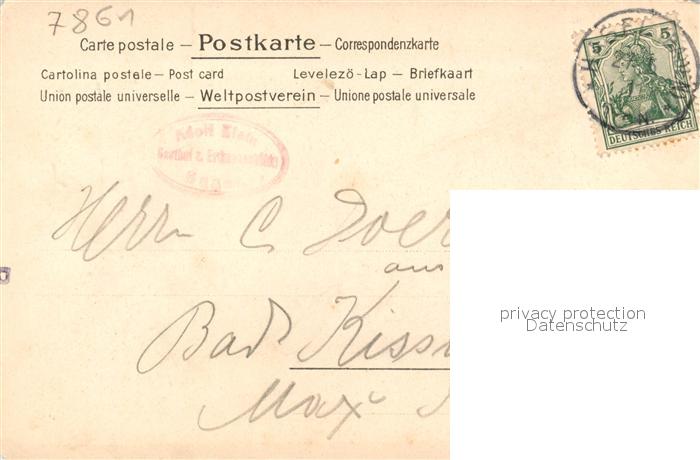 7861
Carte postale – Postkarte – Correspondenzkarte
Cartolina postale – Post card Levelező-Lap – Briefkaart
Union postale universelle – Weltpostverein – Unione postale universale
5 5
DEUTSCHES REICH
Adolf Klein
Gasthof &
Herrn C Doer
aus
Bad Kiss
Max
privacy protection
Datenschutz